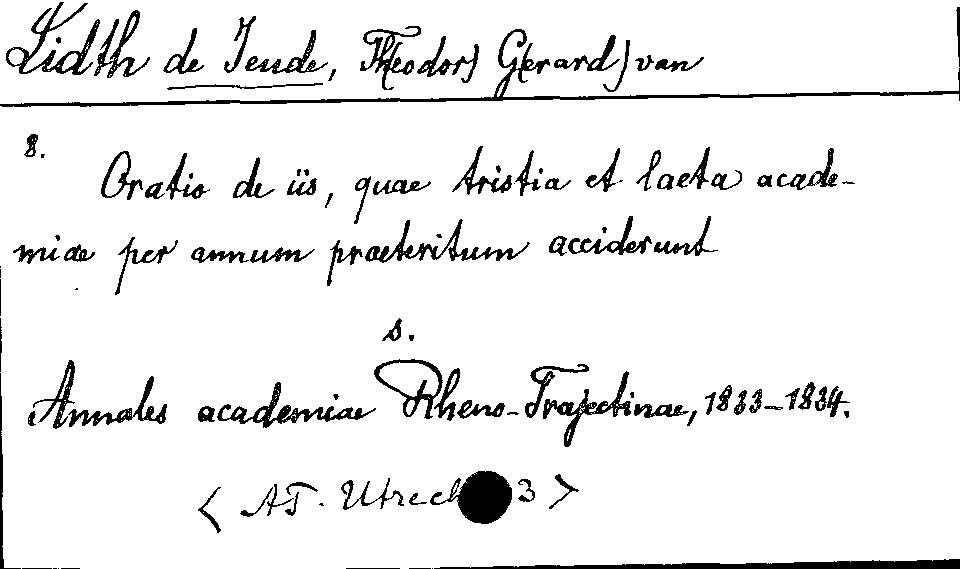 Lidth de Jeude, Theodor) G(erard) van
8.
Oratio de iis, quae tristia et laeta acade-
miae per annum praeteritum acciderunt
s.
Annales academiae Rheno-Trajectinae, 1833-1834.
< AT. Utrech 3 >